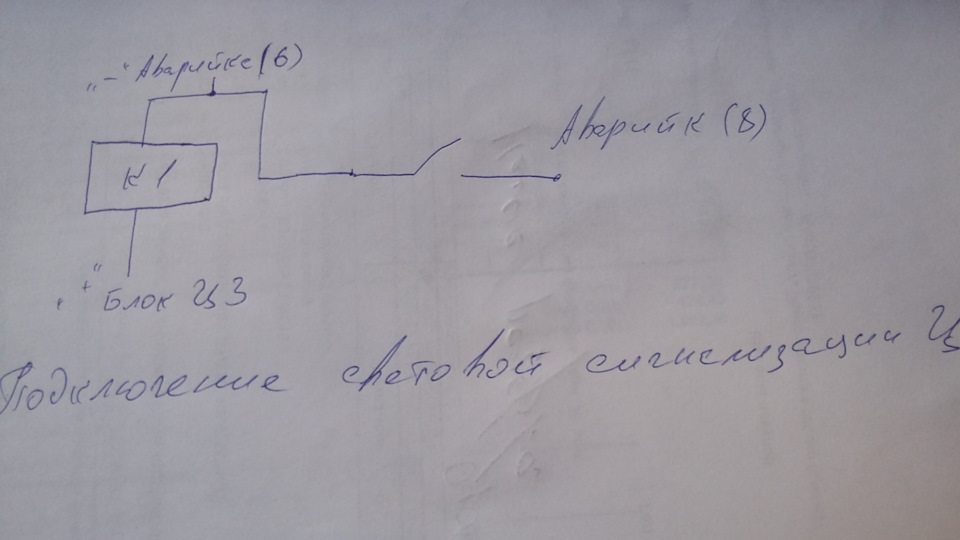 „-" Аварийке (6)
Аварийк (8)
К1
„+" Блок ЦЗ
Подключение световой сигнализации Ц